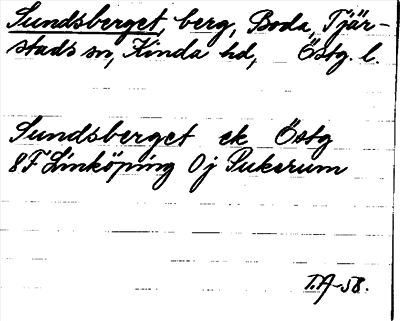 Sundsberget, berg, Boda, Tjär-
stads sn, Kinda hd, Östg. l.
Sundsberget ek Östg
8F Linköping 0j Sukerum
T.A-58.